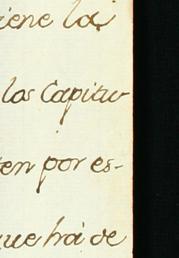 iene la
los Capitu-
ten por es-
que hà de